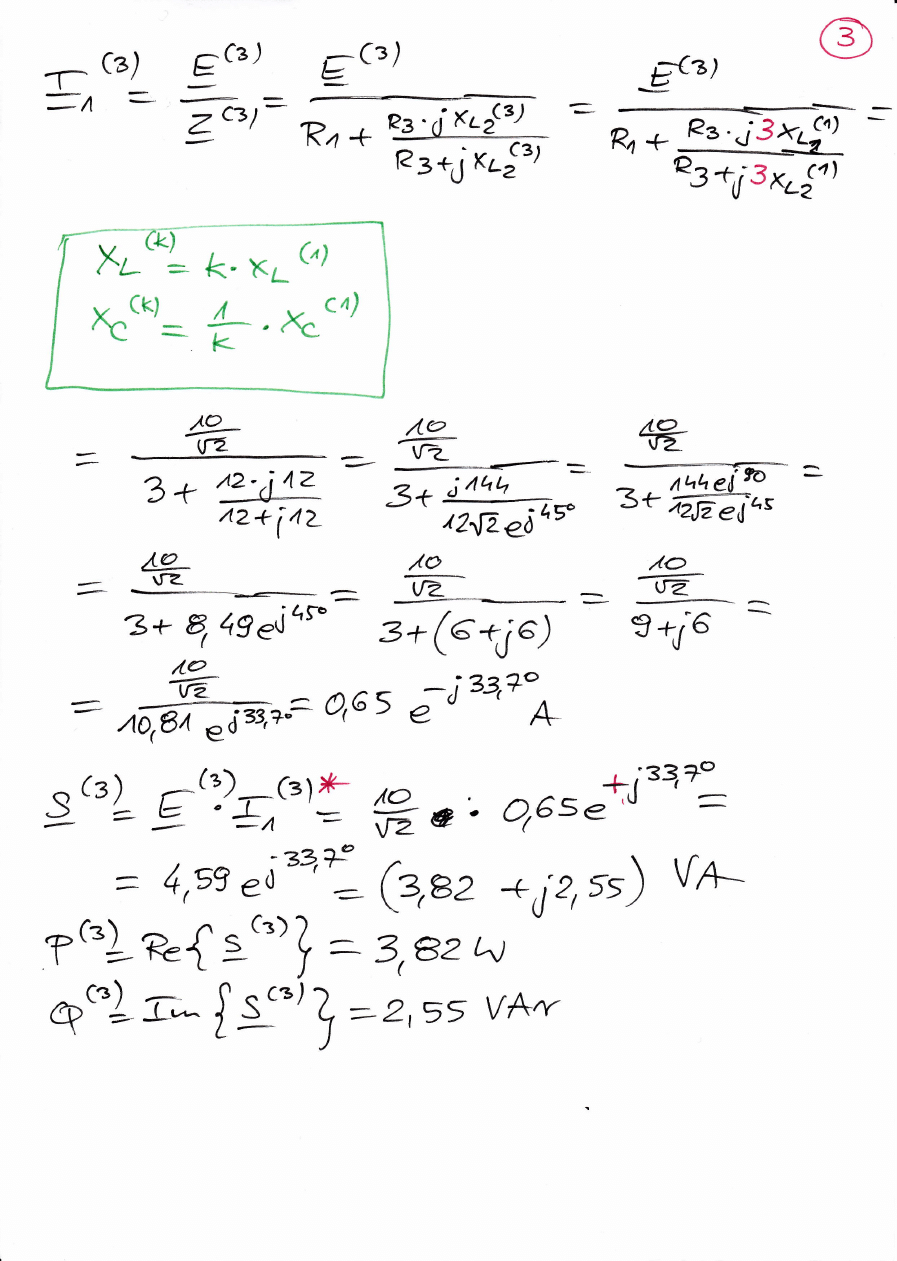 3
I̲₁⁽³⁾ = E̲⁽³⁾/Z⁽³⁾ = E̲⁽³⁾/(R₁ + (R₃·jX_L₂⁽³⁾)/(R₃+jX_L₂⁽³⁾)) = E̲⁽³⁾/(R₁ + (R₃·j3X_L₂⁽¹⁾)/(R₃+j3X_L₂⁽¹⁾)) =
X_L⁽ᵏ⁾ = k·X_L⁽¹⁾
X_C⁽ᵏ⁾ = 1/k · X_C⁽¹⁾
= (10/√2)/(3 + (12·j12)/(12+j12)) = (10/√2)/(3 + j144/(12√2 e^{j45°})) = (10/√2)/(3 + (144e^{j90})/(12√2 e^{j45})) =
= (10/√2)/(3 + 8,49e^{j45°}) = (10/√2)/(3+(6+j6)) = (10/√2)/(9+j6) =
= (10/√2)/(10,81 e^{j33,7°}) = 0,65 e^{-j33,7°} A
S̲⁽³⁾ = E̲⁽³⁾·I̲₁⁽³⁾* = 10/√2 · 0,65e^{+j33,7°} =
= 4,59 e^{j33,7°} = (3,82 + j2,55) VA
P⁽³⁾ = Re{S̲⁽³⁾} = 3,82 W
Q⁽³⁾ = Im{S̲⁽³⁾} = 2,55 VAr